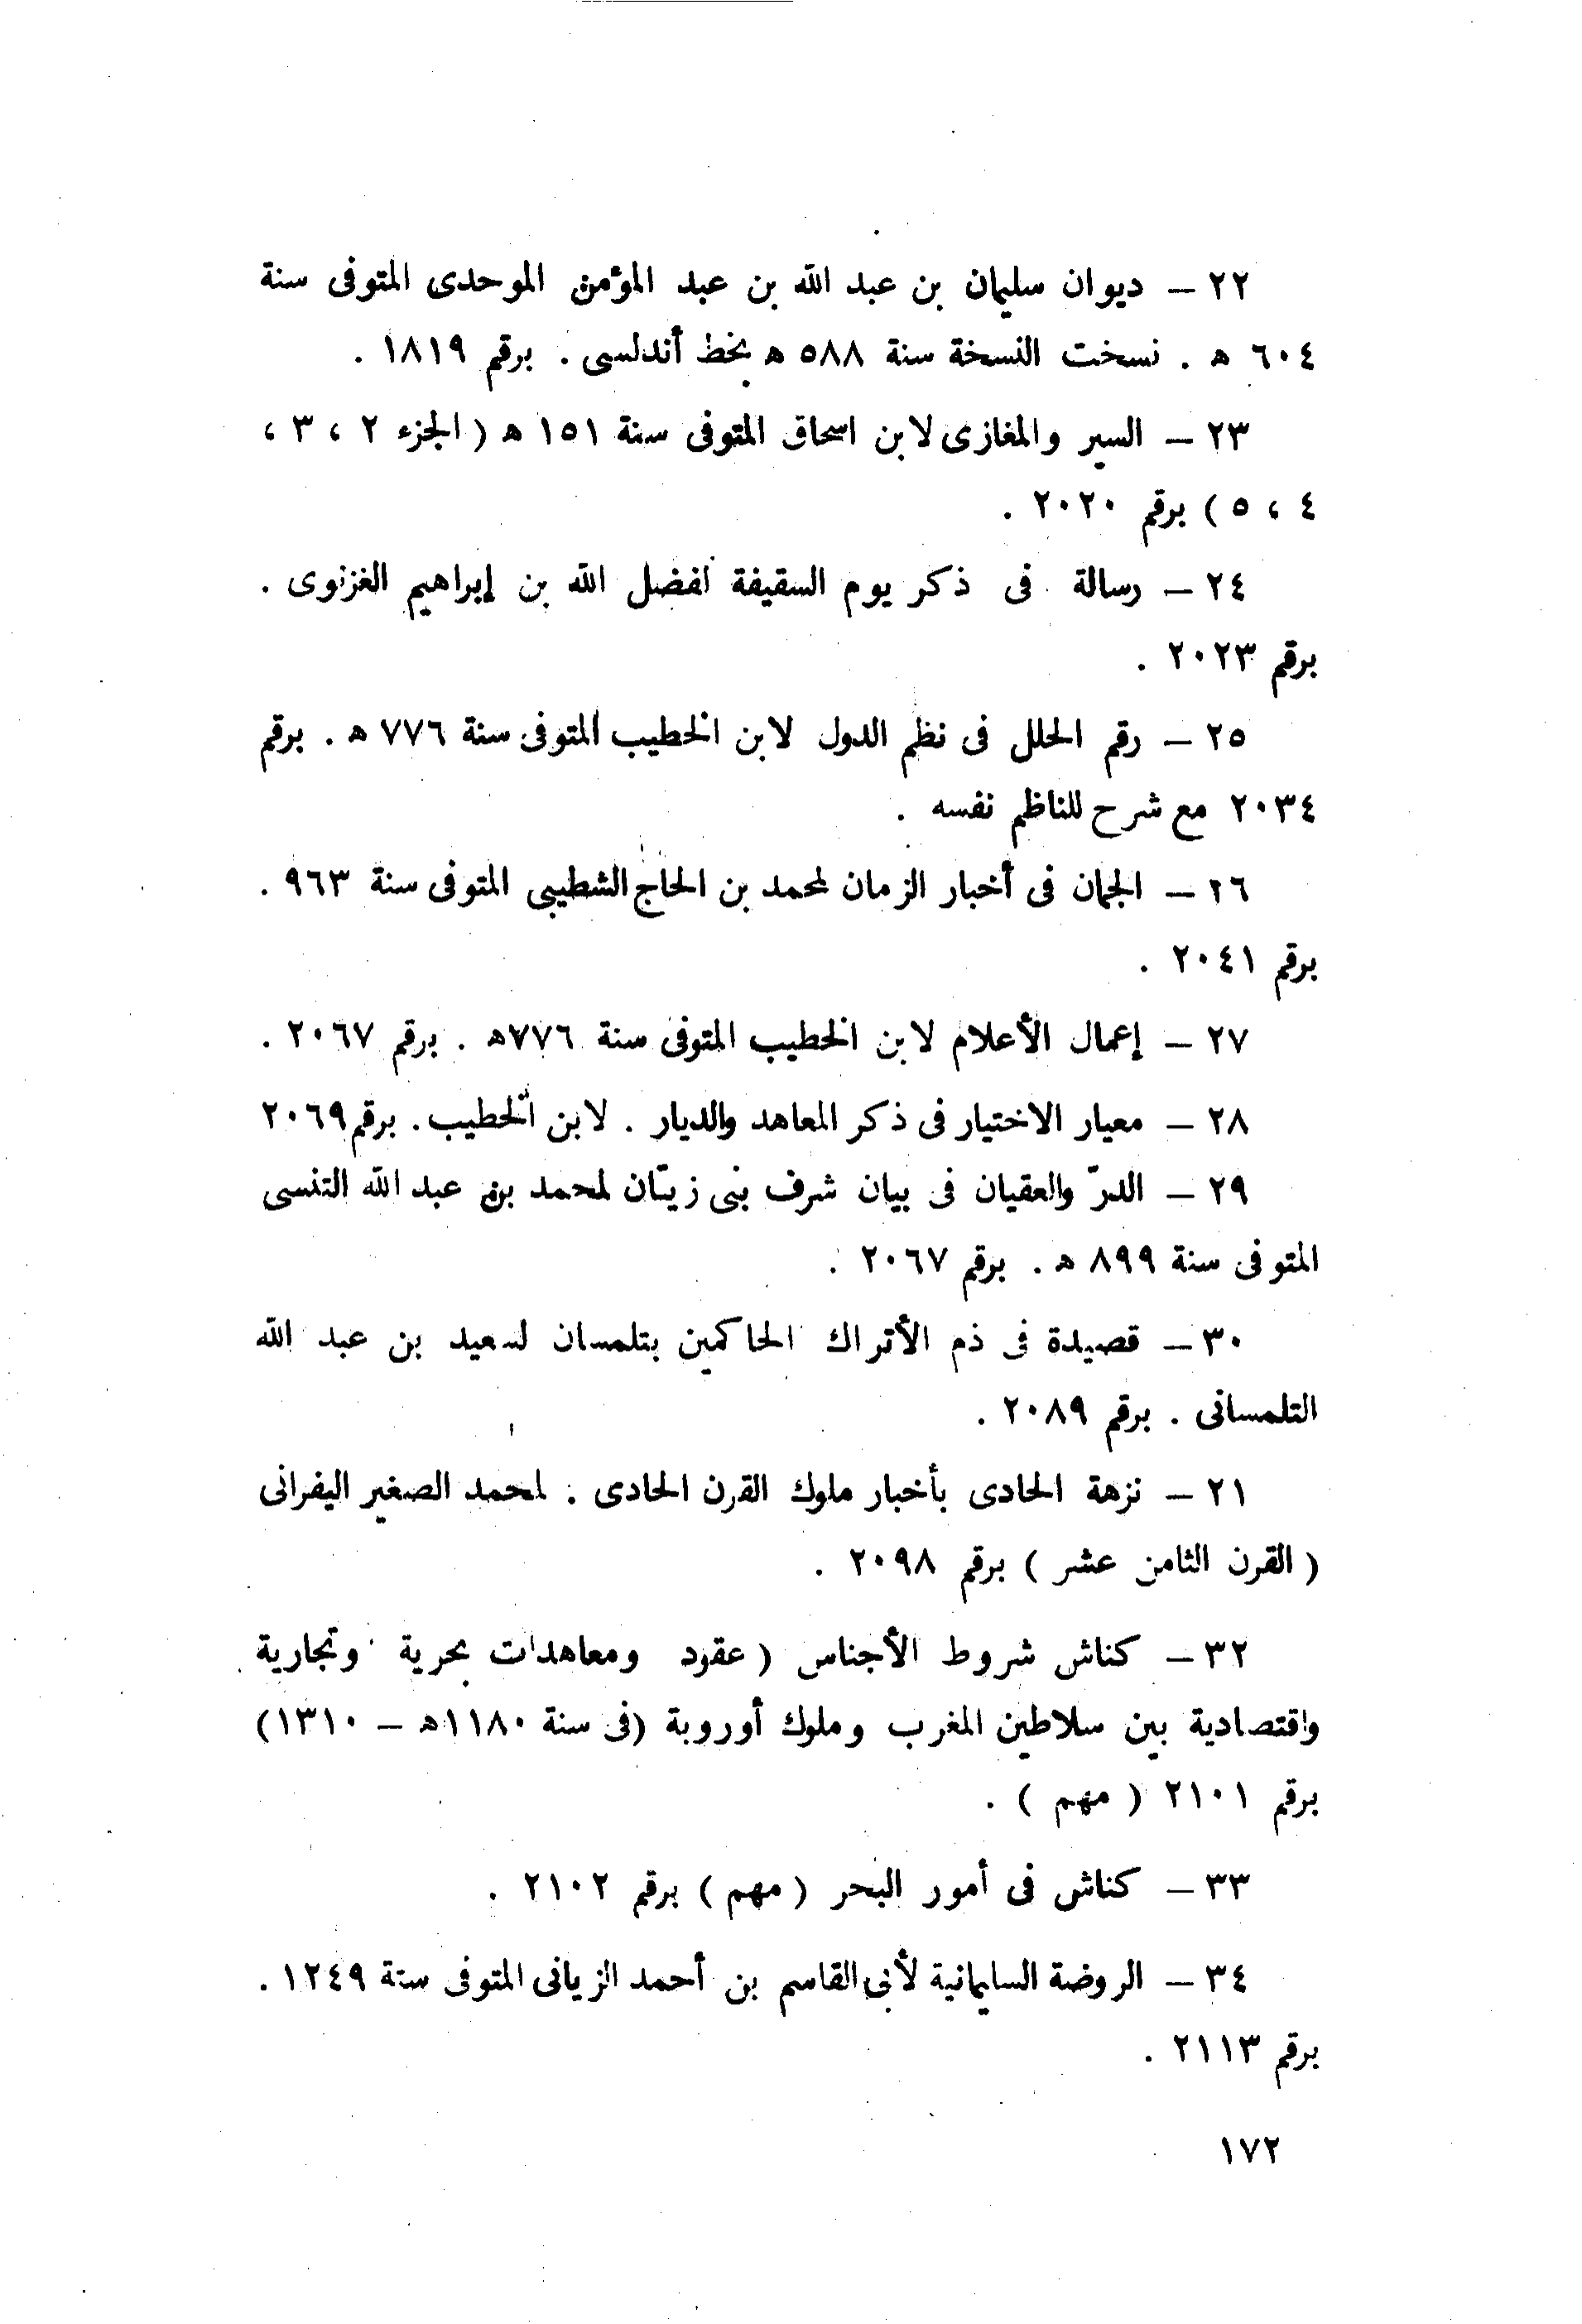 ٢٢ — ديوان سليمان بن عبد الله بن عبد المؤمن الموحدى المتوفى سنة
٦٠٤ ه . نسخت النسخة سنة ٥٨٨ ه بخط أندلسى . برقم ١٨١٩ .
٢٣ — السير والمغازى لابن اسحاق المتوفى سنة ١٥١ ه ( الجزء ٢ ، ٣ ،
٤ ، ٥ ) برقم ٢٠٢٠ .
٢٤ — رسالة فى ذكر يوم السقيفة لفضل الله بن إبراهيم الغزنوى .
برقم ٢٠٢٣ .
٢٥ — رقم الحلل فى نظم الدول لابن الخطيب المتوفى سنة ٧٧٦ ه . برقم
٢٠٣٤ مع شرح للناظم نفسه .
٢٦ — الجمان فى أخبار الزمان لمحمد بن الحاج الشطيبى المتوفى سنة ٩٦٣ .
برقم ٢٠٤١ .
٢٧ — إعمال الأعلام لابن الخطيب المتوفى سنة ٧٧٦ه . برقم ٢٠٦٧ .
٢٨ — معيار الاختيار فى ذكر المعاهد والديار . لابن الخطيب . برقم ٢٠٦٩
٢٩ — الدرّ والعقيان فى بيان شرف بنى زيّان لمحمد بن عبد الله التنسى
المتوفى سنة ٨٩٩ ه . برقم ٢٠٦٧ .
٣٠ — قصيدة فى ذم الأتراك الحاكمين بتلمسان لسعيد بن عبد الله
التلمسانى . برقم ٢٠٨٩ .
٢١ — نزهة الحادى بأخبار ملوك القرن الحادى . لمحمد الصغير اليفرانى
( القرن الثامن عشر ) برقم ٢٠٩٨ .
٣٢ — كناش شروط الأجناس ( عقود ومعاهدات بحرية وتجارية
واقتصادية بين سلاطين المغرب وملوك أوروبة (فى سنة ١١٨٠ه — ١٣١٠)
برقم ٢١٠١ ( مهم ) .
٣٣ — كناش فى أمور البحر ( مهم ) برقم ٢١٠٢ .
٣٤ — الروضة السليمانية لأبى القاسم بن أحمد الزيانى المتوفى سنة ١٢٤٩ .
برقم ٢١١٣ .
١٧٢